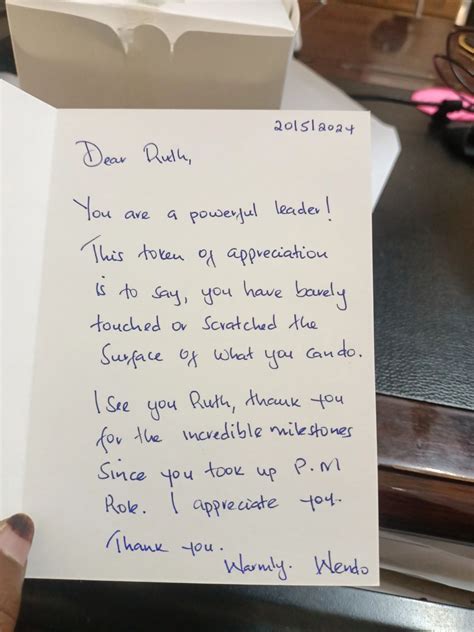 20/5/2024
Dear Ruth,
You are a powerful leader!
This token of appreciation
is to say, you have barely
touched or scratched the
Surface of what you can do.
I see you Ruth, thank you
for the incredible milestones
Since you took up P.M
Role. I appreciate you.
Thank you.
Warmly. Wendo